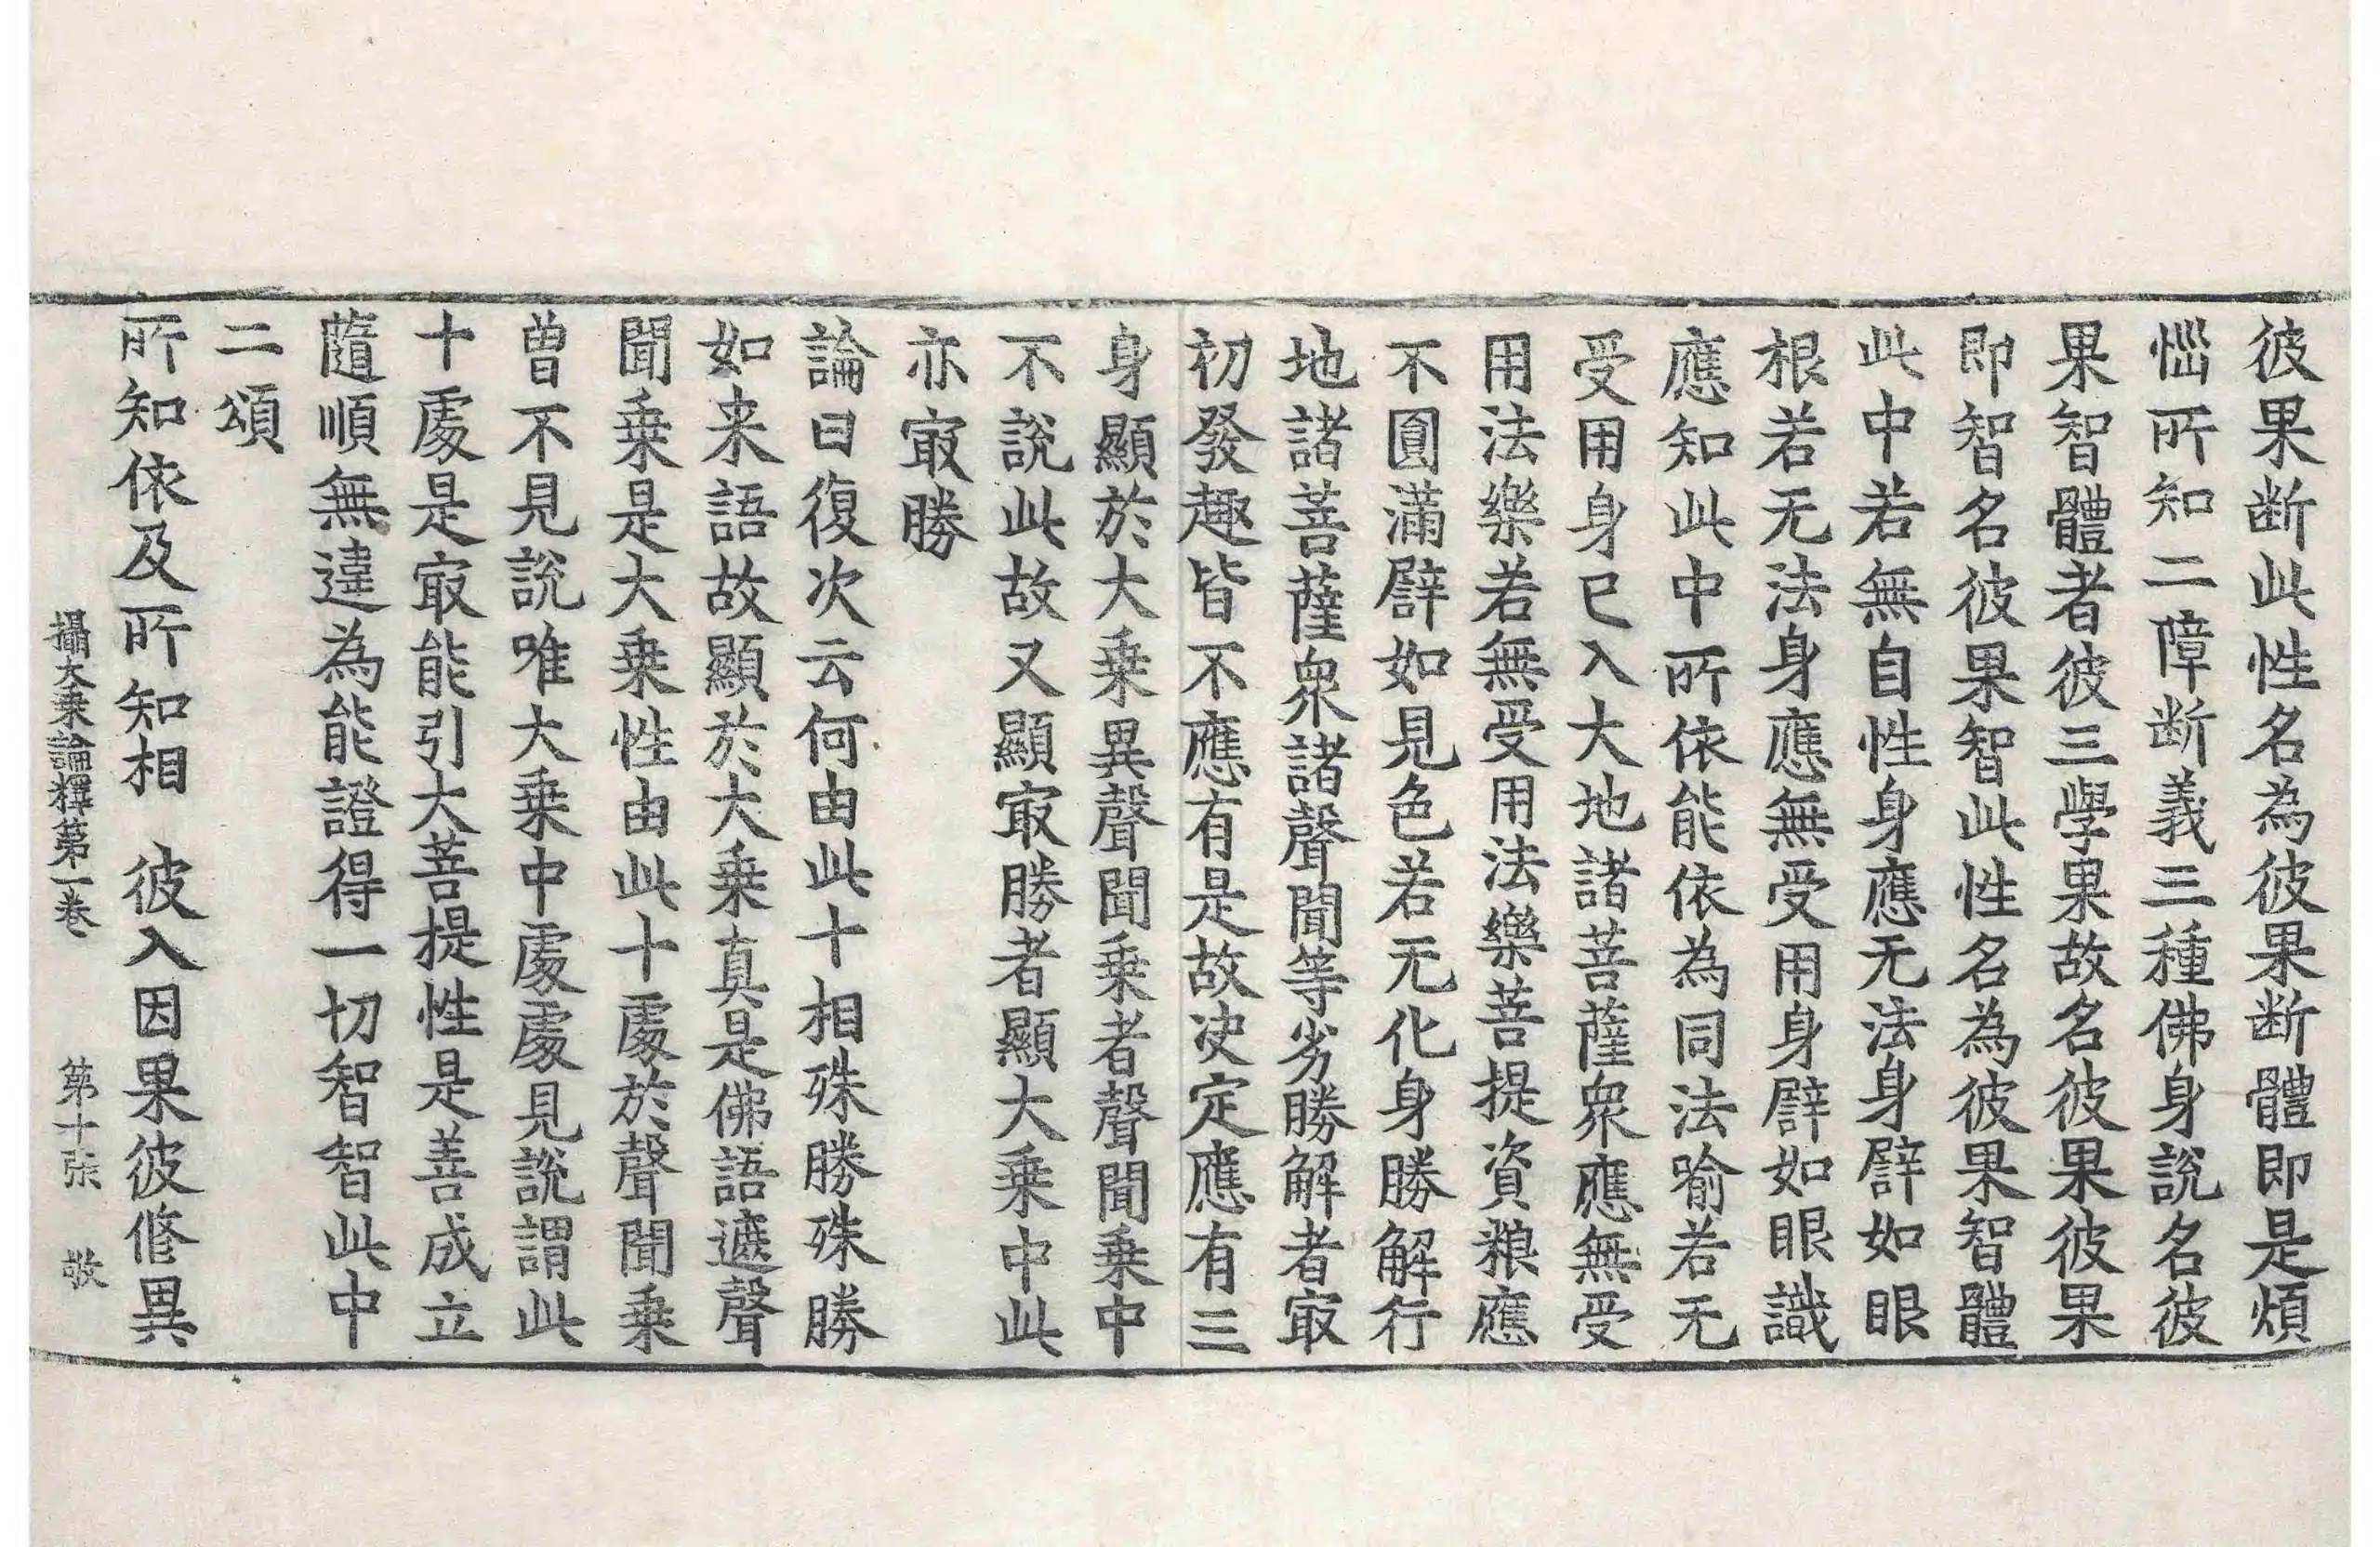 彼果断此性名為彼果断體即是煩
惱所知二障断義三種佛身說名彼
果智體者彼三學果故名彼果彼果
即智名彼果智此性名為彼果智體
此中若無自性身應无法身譬如眼
根若无法身應無受用身譬如眼識
應知此中所依能依為同法喻若无
受用身已入大地諸菩薩衆應無受
用法樂若無受用法樂菩提資粮應
不圓滿譬如見色若无化身勝解行
地諸菩薩衆諸聲聞等劣勝解者㝡
初發趣皆不應有是故決定應有三
身顯於大乗異聲聞乗者聲聞乗中
不說此故又顯㝡勝者顯大乗中此
亦㝡勝
論曰復次云何由此十相殊勝殊勝
如来語故顯於大乗真是佛語遮聲
聞乗是大乗性由此十處於聲聞乗
曾不見說唯大乗中處處見說謂此
十處是㝡能引大菩提性是善成立
隨順無違為能證得一切智智此中
二頌
所知依及所知相 彼入因果彼修異
攝大乗論釋第一卷 第十張 敬